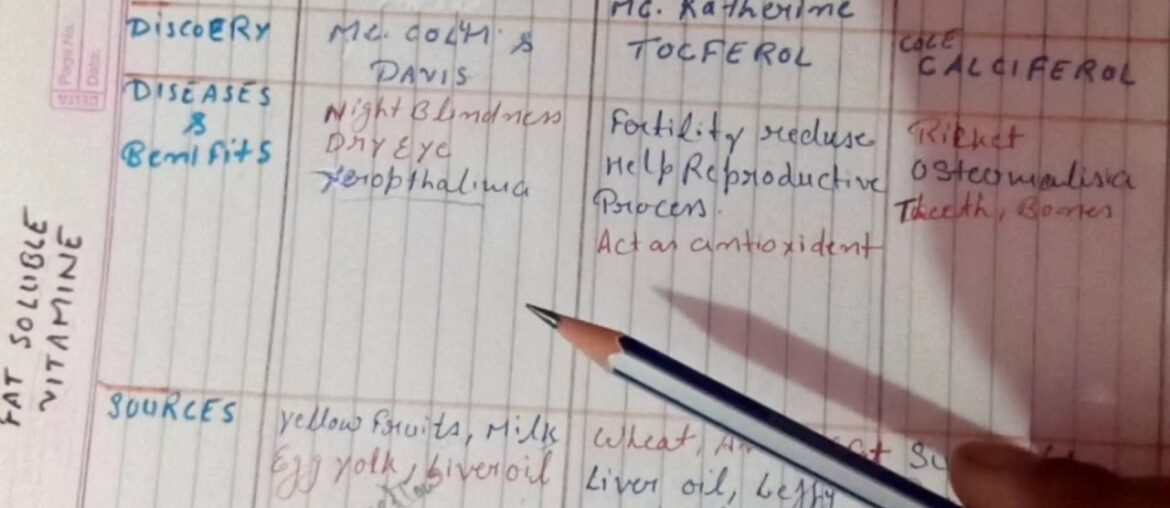 Mc. Katherine
DiscoERY
Mc. COLYM &
DAVIS
TOCFEROL
COLE
CALCIFEROL
DISEASES
&
BeniFits
Night Blindness
Dry Eye
Xeropthalima
Fertility reduse
Help Reproductive
Process.
Act as antioxident
Ricket
Osteomalisia
Theeth, Bones
FAT SOLUBLE
VITAMINE
Page No.
Date:
DELTA
SOURCES
yellow fruits, Milk
Egg yolk, Liver oil
Wheat,
Liver oil, Leffy